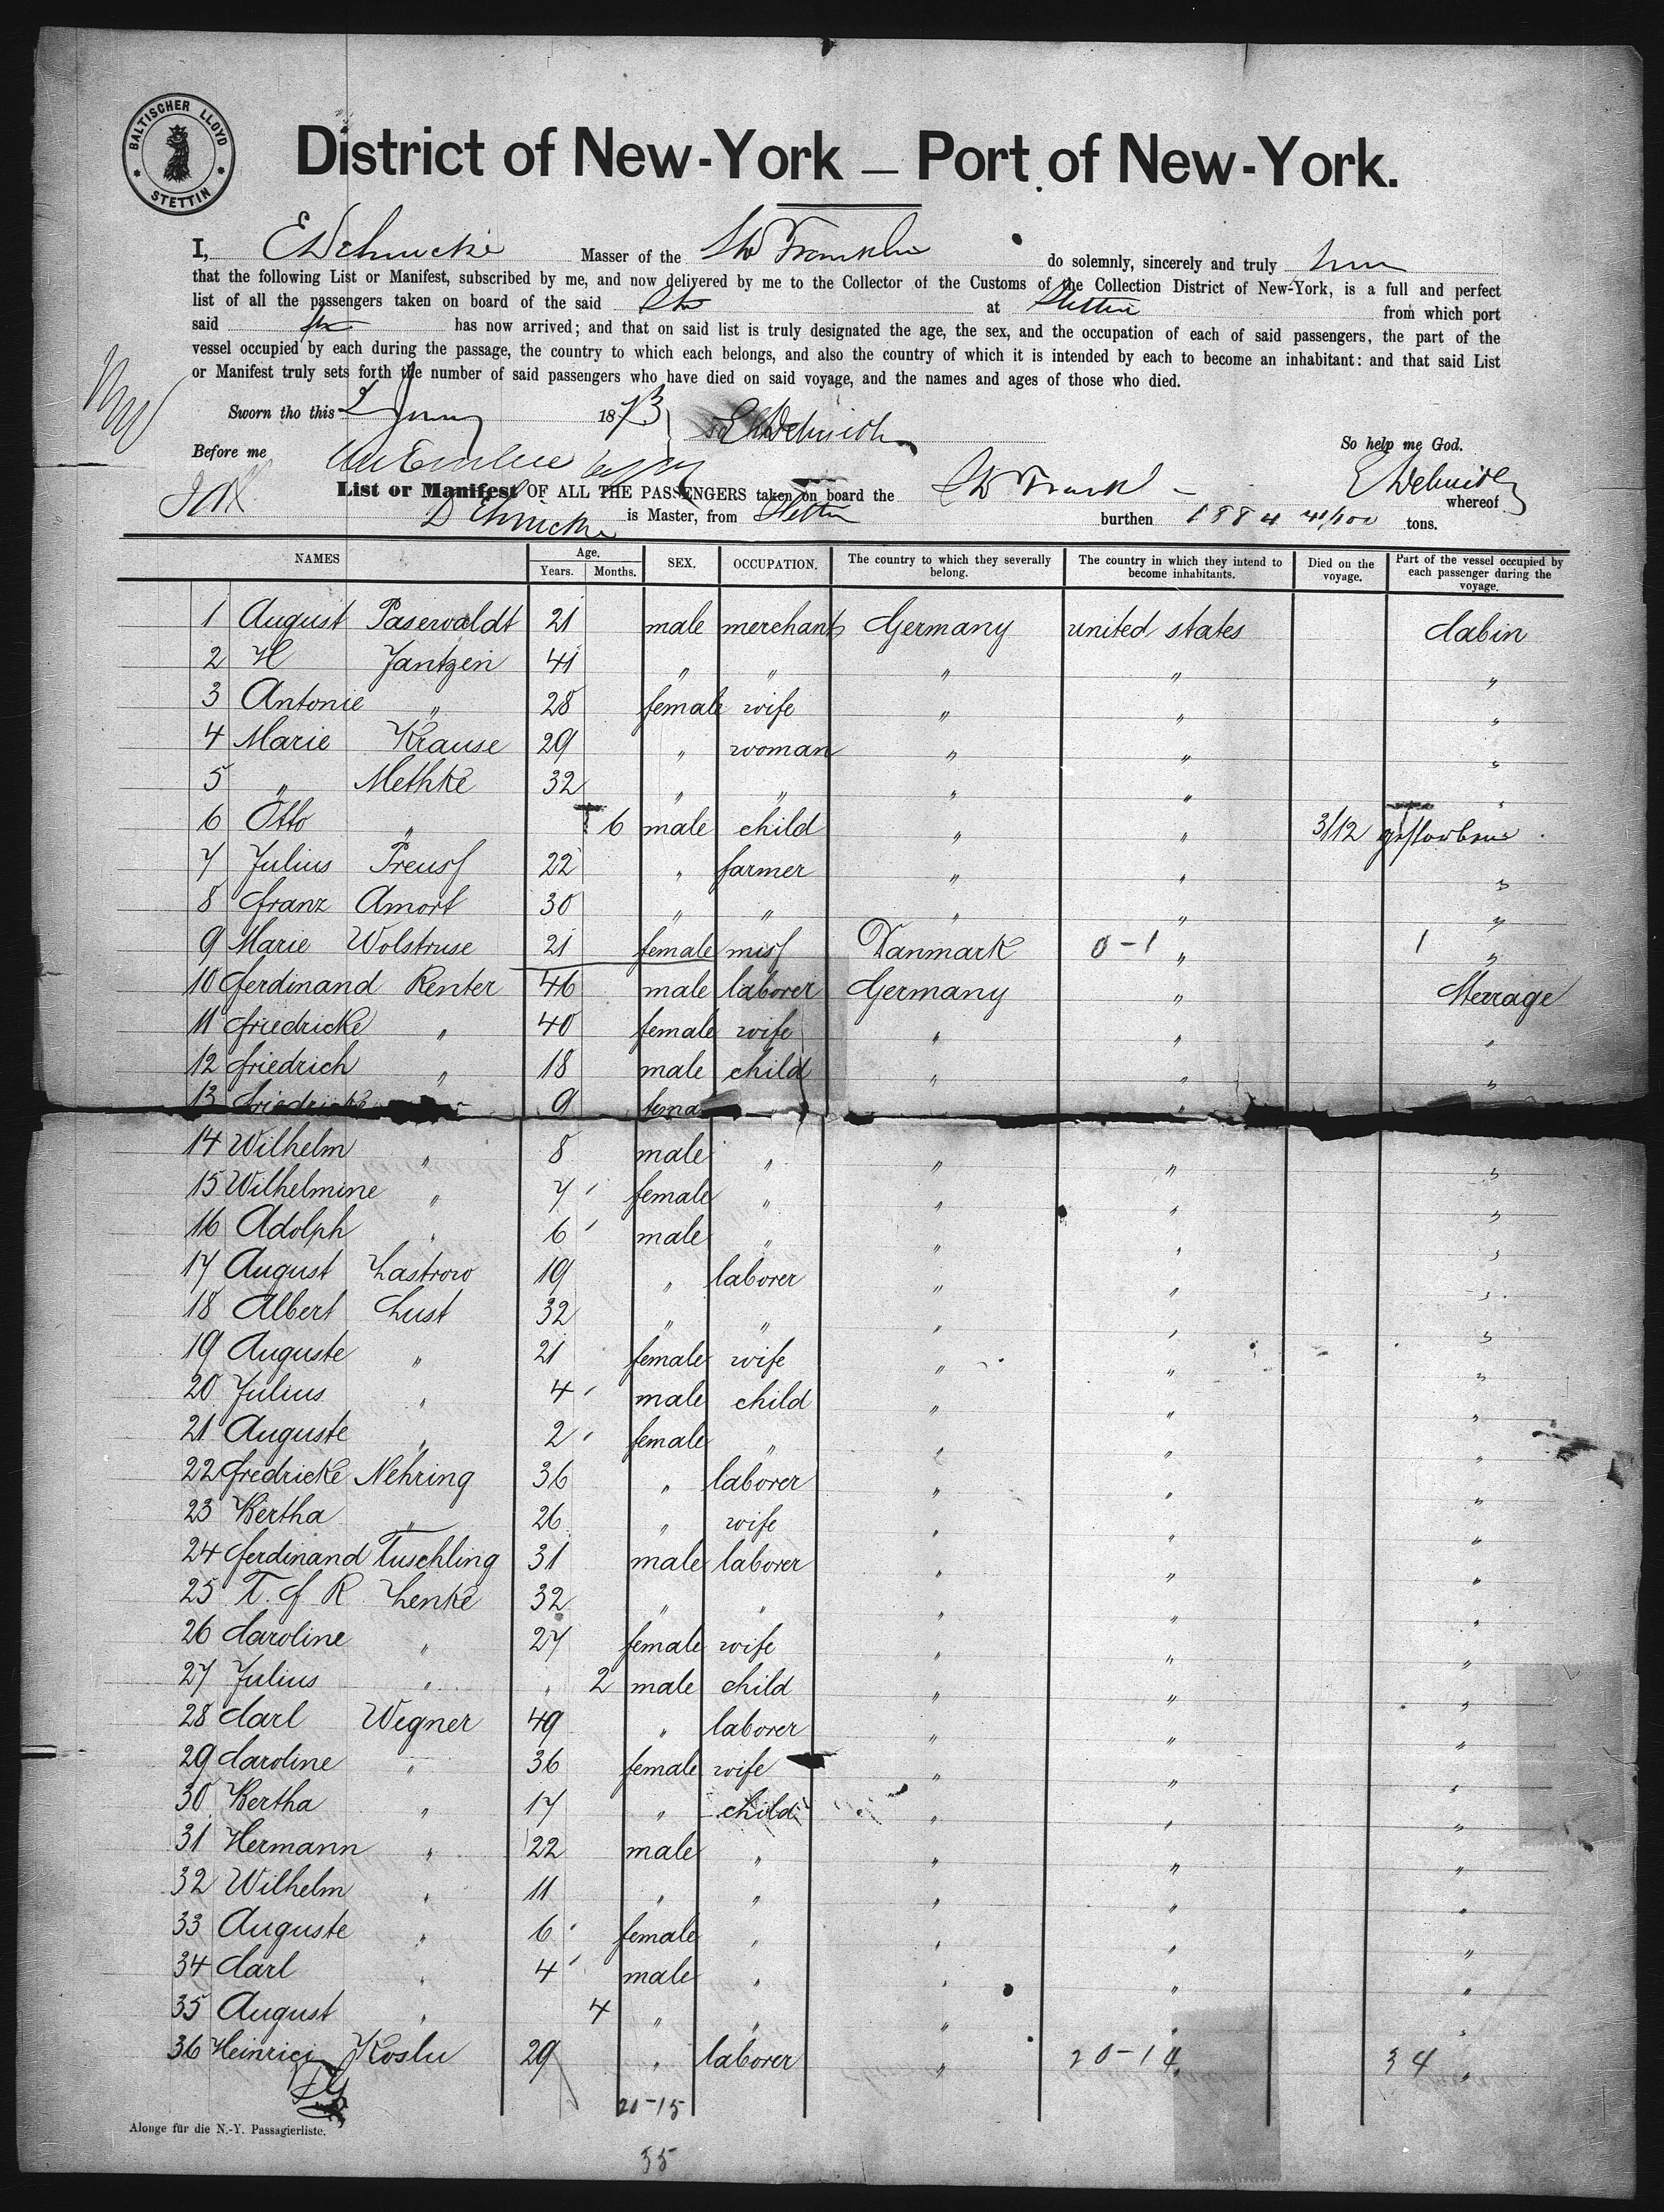 BALTISCHER LLOYD
* STETTIN *
District of New-York — Port of New-York.
I, Masser of the Franklin do solemnly, sincerely and truly
that the following List or Manifest, subscribed by me, and now delivered by me to the Collector of the Customs of the Collection District of New-York, is a full and perfect
list of all the passengers taken on board of the said at Stettin from which port
said has now arrived; and that on said list is truly designated the age, the sex, and the occupation of each of said passengers, the part of the
vessel occupied by each during the passage, the country to which each belongs, and also the country of which it is intended by each to become an inhabitant: and that said List
or Manifest truly sets forth the number of said passengers who have died on said voyage, and the names and ages of those who died.
Sworn tho this 2 1873
So help me God.
Before me
List or Manifest OF ALL THE PASSENGERS taken on board the whereof
is Master, from Stettin burthen 1884 41/100 tons.
NAMES Age. Years. Months. SEX. OCCUPATION. The country to which they severally belong. The country in which they intend to become inhabitants. Died on the voyage. Part of the vessel occupied by each passenger during the voyage.
1 August Paserwaldt 21 male merchant Germany united states Cabin
2 H Jantzen 41 " " " " "
3 Antonie " 28 female wife " " "
4 Marie Krause 29 " woman " " "
5 " Methke 32 " " " " "
6 Otto " 6 male child " " 3/12 gestorben
7 Julius Preuss 22 " farmer " " "
8 Franz Amort 30 " " " " "
9 Marie Wolstruse 21 female miss Danmark 0-1 " 1 "
10 Ferdinand Renter 46 male laborer Germany " Sterrage
11 Friedricke " 40 female wife " " "
12 Friedrich " 18 male child " " "
13 Friedricke 9 fema "
14 Wilhelm " 8 male " " " "
15 Wilhelmine " 7 female " " " "
16 Adolph " 6 male " " " "
17 August Lastrow 19 " laborer " " "
18 Albert Lust 32 " " " " "
19 Auguste " 21 female wife " " "
20 Julius " 4 male child " " "
21 Auguste " 2 female " " " "
22 Fredricke Nehring 36 " laborer " " "
23 Bertha " 26 " wife " " "
24 Ferdinand Tuschling 31 male laborer " " "
25 T. F R Lenke 32 " " " " "
26 Caroline " 27 female wife " " "
27 Julius " " 2 male child " " "
28 Carl Wegner 49 " laborer " " "
29 Caroline " 36 female wife " " "
30 Bertha " 17 " child " " "
31 Hermann " 22 male " " " "
32 Wilhelm " 11 " " " " "
33 Auguste " 6 female " " " "
34 Carl " 4 male " " " "
35 August " 4 " " " " "
36 Heinrich Koslu 29 " laborer " 20-14 " 34 "
20-15
Alonge für die N.-Y. Passagierliste.
35